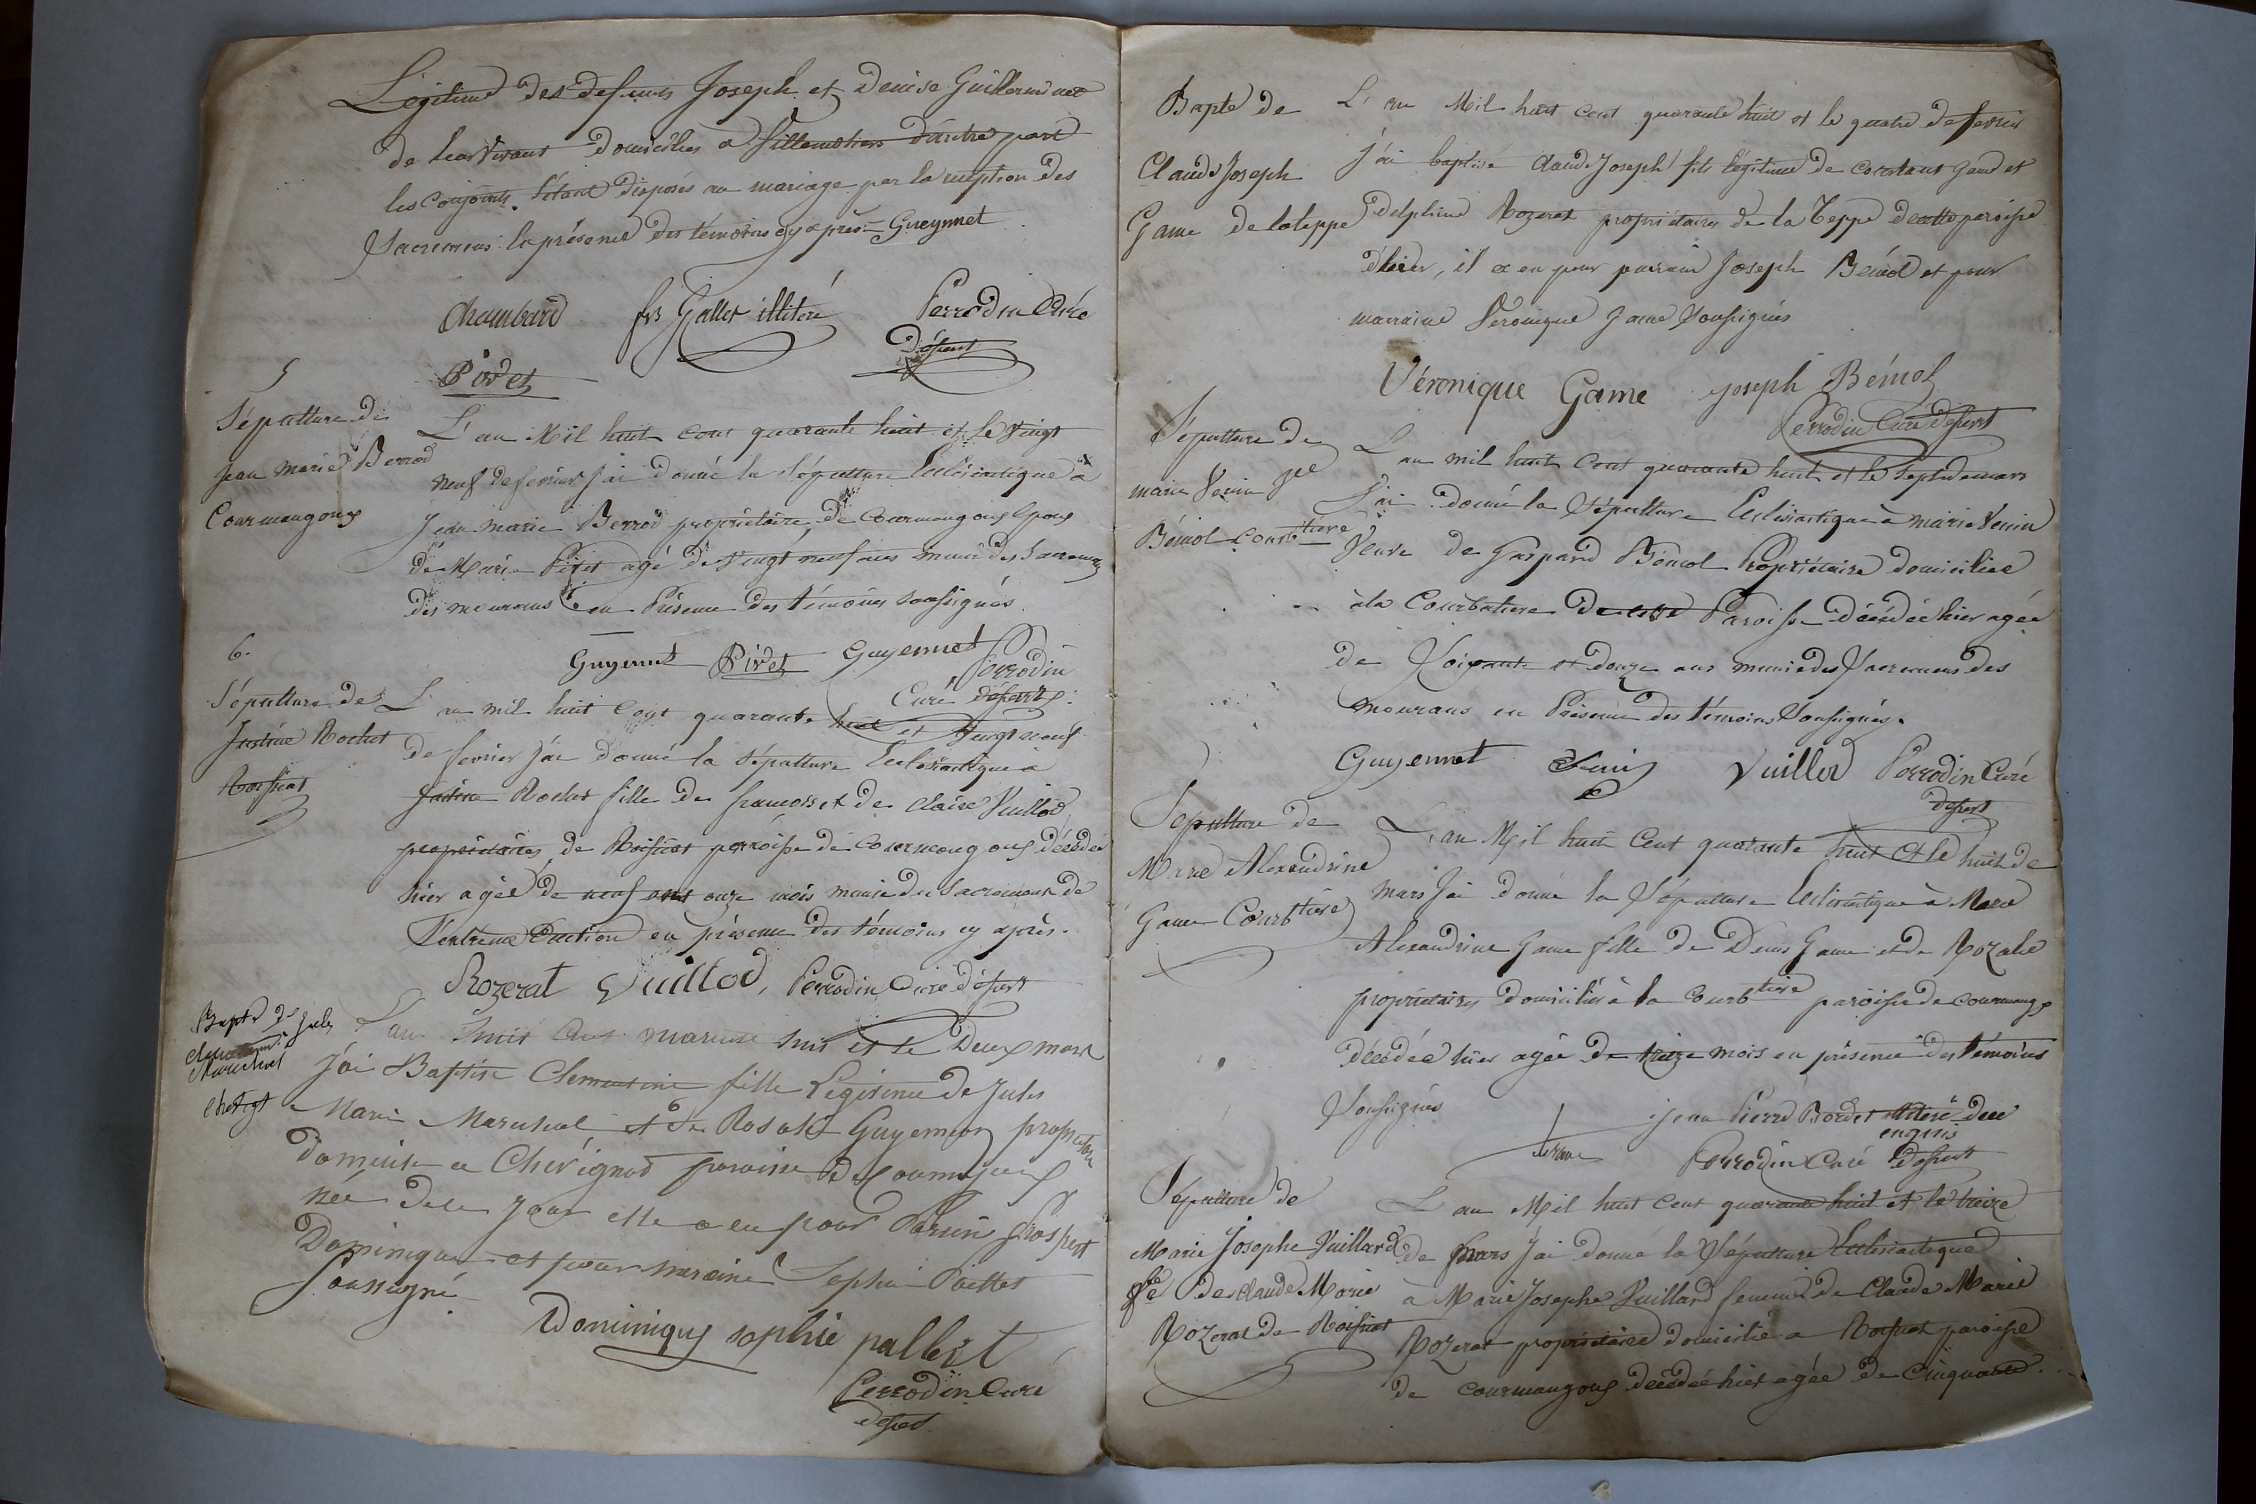 Légitime des defunts Joseph et Denise Guillermin
de leur vivant domiciliés a Villemotier d'autre part
les conjoints s'étant disposés au mariage par la reception des
Sacremens la présence des témoins cy après Gueynnet
Chambard frs Gallet illitéré Perrodin Curé
Dépert
Pivet
5
Sépulture de
jean marie Berrod
Courmangoux
L'an Mil huit cent quarante huit et le vingt
neuf de fevrier j'ai donné la sépulture Ecclésiastique a
Jean marie Berrod propriétaire, de Courmangoux Epoux
de Marie Pivet agé de vingt neuf ans muni des Sacremens
des mourans en Présence des témoins soussignés
Guyennet Pivet Guyennet Perrodin
Curé dépert
6.
Sépulture de
Justine Rochet
Roissiat
L'an mil huit cent quarante huit et vingt neuf
de fevrier j'ai donné la sépulture Ecclésiastique a
Justine Rochet fille de francois et de Claire Vuillod
propriétaires de Roissiat parroisse de Courmangoux décédée
hier agée de neuf ans onze mois munie du Sacrement de
l'extreme Onction en présence des témoins cy après.
Rozerat Vuillod, Perrodin Curé dépert
Bapt de jules
Clementine
Marechal
chevigt
L'an huit cent quarante huit et le Deux mars
J'ai Baptisé Clementine fille Légitime de Jules
Marie Marechal et de Rosalie Guyennon propriétaire
domicilié a Chevignat paroisse de Courmangoux
née de ce jour elle a eu pour Parrain Prospert
Dominique et pour maraine Sophie Paillet
Soussigné
Dominique sophie pallert
Perrodin Curé
dépert
Bapte de
Claude Joseph
Game de lateppe
L'an Mil huit cent quarante huit et le quatre de fevrier
j'ai baptisé Claude Joseph fils légitime de constant Game et
Delphine Rozerat propriétaires de la Teppe de cette paroisse
d'hier, il a eu pour parrain Joseph Bémol et pour
marraine Véronique Game Soussignés
Véronique Game joseph Bémol
Perrodin Curé dépert
Sépulture de
marie Venin Ve
Bémol Courbtiere
L'an mil huit cent quarante huit et le sept de mars
j'ai donné la sépulture Ecclésiastique a marie Venin
Veuve de Gaspard Bémol Propriétaire domiciliée
à la Courbatiere de cette Paroisse décédée hier agée
de Soixante et douze ans munie des Sacremens des
mourans en Présence des témoins Soussignés.
Guyennet Vuillod Perrodin Curé
dépert
Sépulture de
Marie Alexandrine
Game Courbtière
L'an Mil huit cent quarante huit et le huit de
mars j'ai donné la Sépulture Ecclésiastique à Marie
Alexandrine Game fille de Denis Game et de Rozalie
propriétaires domiciliés à la Courbtière paroisse de courmangx
décédée hier agée de treize mois en présence des témoins
Soussignés
jean Pierre Bordet illitéré de ce
enquis
Perrodin Curé dépert
Sépulture de
Marie Josephe Vuillard
fe de Claude Marie
Rozerat de Roissiat
L'an Mil huit cent quarante huit et le treize
de Mars j'ai donné la Sépulture Ecclésiastique
à Marie Josephe Vuillard femme de Claude Marie
Rozerat propriétaire domicilié a Roissiat paroisse
de courmangoux décédée hier agée de Cinquante